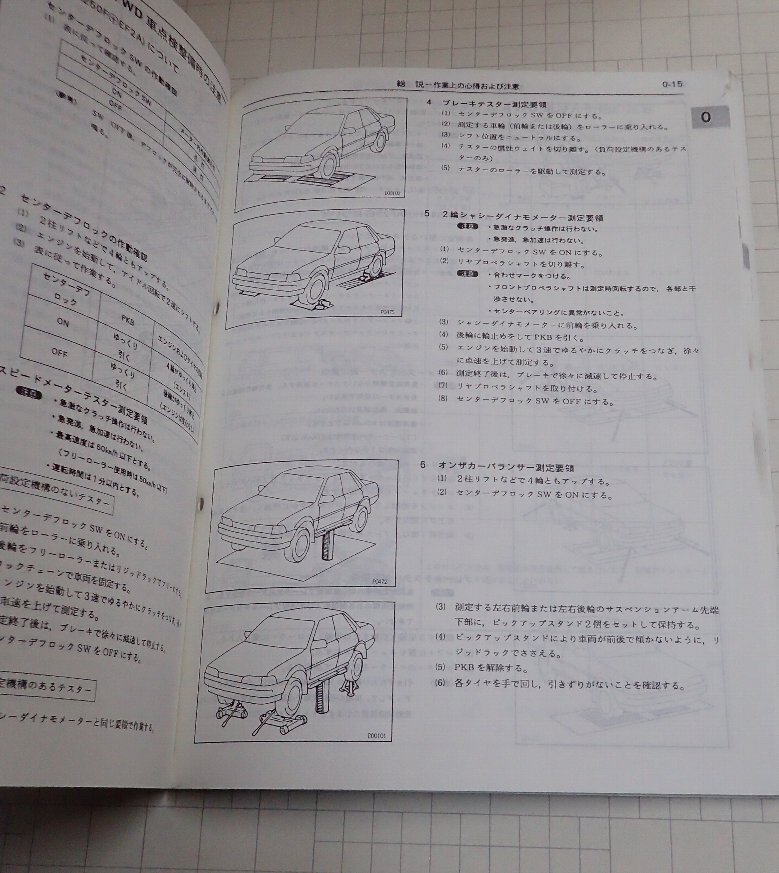 WD 車点検整備時の注意
センターデフロックSWの作動確認
(1) 表に従って確認する。
センターデフロックSW
ON
OFF
センターデフロックの作動確認
(1) 2柱リフトなどで4輪ともアップする。
(2) エンジンを始動して、アイドル回転で2速にシフトする。
(3) 表に従って作業する。
センターデフロック
PKB
ON
ゆっくり引く
OFF
ゆっくり引く
スピードメーターテスター測定要領
注意 ・急激なクラッチ操作は行わない。
・急発進、急加速は行わない。
・最高速度は60km/h以下とする。
(フリーローラー使用時は50km/h以下)
・運転時間は1分以内とする。
荷設定機構のないテスター
センターデフロックSWをONにする。
前輪をローラーに乗り入れる。
後輪をフリーローラーまたはリジッドラックで
ックチェーンで車両を固定する。
エンジンを始動して3速でゆるやかにクラッチをつなぎ
車速を上げて測定する。
定終了後は、ブレーキで徐々に減速して停止する。
ンターデフロックSWをOFFにする。
定機構のあるテスター
シーダイナモメーターと同じ要領で作業する。
総 説－作業上の心得および注意
0-15
0
4 ブレーキテスター測定要領
(1) センターデフロックSWをOFFにする。
(2) 測定する車輪(前輪または後輪)をローラーに乗り入れる。
(3) シフト位置をニュートラルにする。
(4) テスターの慣性ウェイトを切り離す。(負荷設定機構のあるテス
ターのみ)
(5) テスターのローラーを駆動して測定する。
5 2輪シャシーダイナモメーター測定要領
注意 ・急激なクラッチ操作は行わない。
・急発進、急加速は行わない。
(1) センターデフロックSWをONにする。
(2) リヤプロペラシャフトを切り離す。
注意 ・合わせマークをつける。
・フロントプロペラシャフトは測定時回転するので、各部と干
渉させない。
・センターベアリングに異常がないこと。
(3) シャシーダイナモメーターに前輪を乗り入れる。
(4) 後輪に輪止めをしてPKBを引く。
(5) エンジンを始動して3速でゆるやかにクラッチをつなぎ、徐々
に車速を上げて測定する。
(6) 測定終了後は、ブレーキで徐々に減速して停止する。
(7) リヤプロペラシャフトを取り付ける。
(8) センターデフロックSWをOFFにする。
P0475
6 オンザカーバランサー測定要領
(1) 2柱リフトなどで4輪ともアップする。
(2) センターデフロックSWをONにする。
P0472
(3) 測定する左右前輪または左右後輪のサスペンションアーム先端
下部に、ピックアップスタンド2個をセットして保持する。
(4) ピックアップスタンドにより車両が前後で傾かないように、リ
ジッドラックでささえる。
(5) PKBを解除する。
(6) 各タイヤを手で回し、引きずりがないことを確認する。
E00101